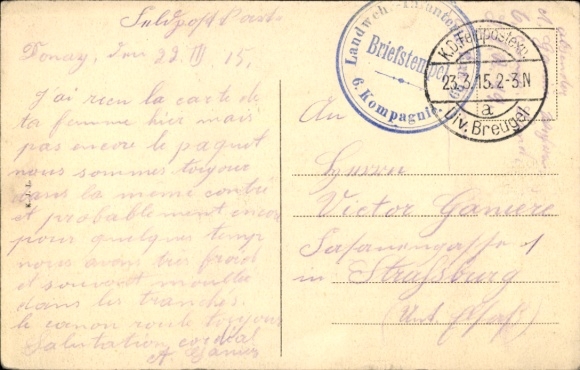 Feldpost Karte
Douay, den 22 III 15.
J'ai recu la carte de
ta femme hier mais
pas encore le paquet
nous sommes toujour
dans la meme contré
et probablement encor
pour quelques temp
nous avons tres froid
et souvent mouillé
dans les tranches.
le canon roule toujours
Salutation cordial
A. Ganier
K.D. Feldpostexp.
23.3.15. 2-3 N
a.
Div. Breugel
Landwehr-Infanterie
Briefstempel
6. Kompagnie
Absender
An
Herrn
Victor Ganiere
Fasanengasse 1
in Straßburg
(Unt. Elsaß)
K.J.L.